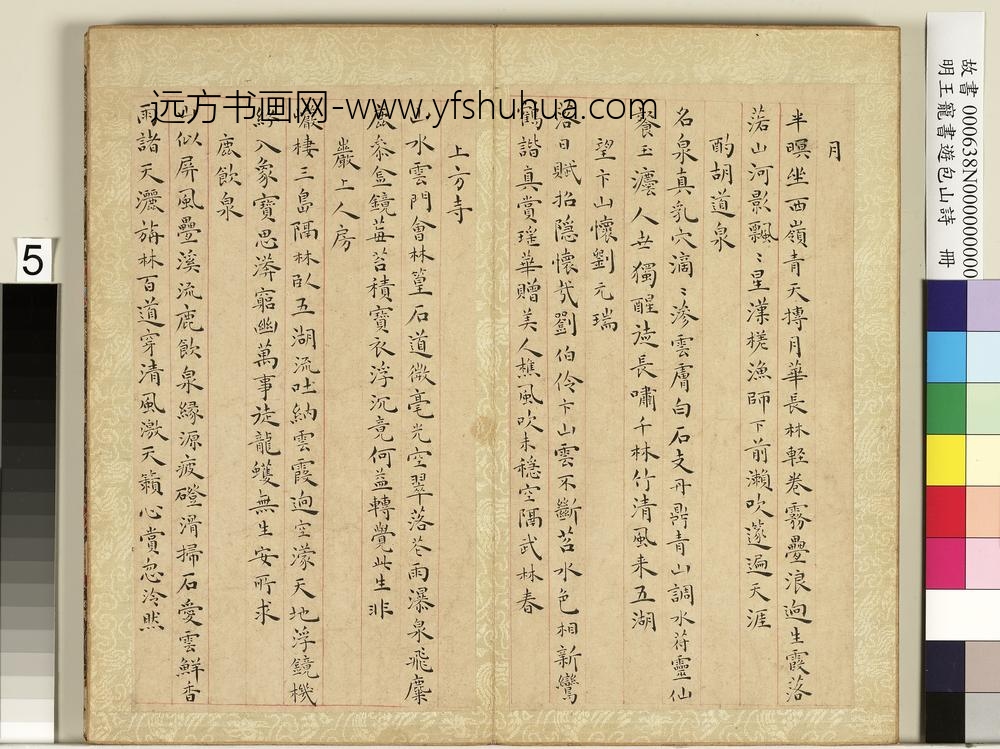 月
半暝坐西嶺青天摶月華長林輕卷霧疊浪逈生霞落
落山河影飄〻星漢槎漁師下前瀨吹篴遍天涯
酌胡道泉
名泉真乳穴滴〻滲雲膚白石支丹鼎青山調水符靈仙
餐玉瀣人世獨醒徒長嘯千林竹清風来五湖
望卞山懷劉元瑞
落日賦招隱懷我劉伯伶卞山雲不斷苕水色相新鸞
鶴諧真賞瑤華贈美人樵風吹未穩空隔武林春
上方寺
水雲門會林篁石道微毫光空翠落花雨瀑泉飛麋
鹿叅金鏡莓苔積寶衣浮沉竟何益轉覺此生非
巖上人房
巖棲三島隔林臥五湖流吐納雲霞逈空濛天地浮鏡機
八象寶思溿窮幽萬事従龍蠖無生安所求
鹿飲泉
山似屏風疊溪流鹿飲泉緣源疲磴滑掃石愛雲鮮香
雨諸天灑旃林百道穿清風激天籟心賞忽泠然
远方书画网-www.yfshuhua.com
5
故書000638N000000000
明王寵書遊包山詩 冊